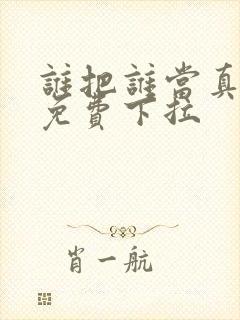 誰把誰當真
免費下拉
肖一航